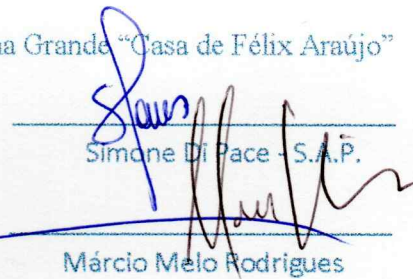 na Grande “Casa de Félix Araújo”
Simone Di Pace - S.A.P.
Márcio Melo Rodrigues